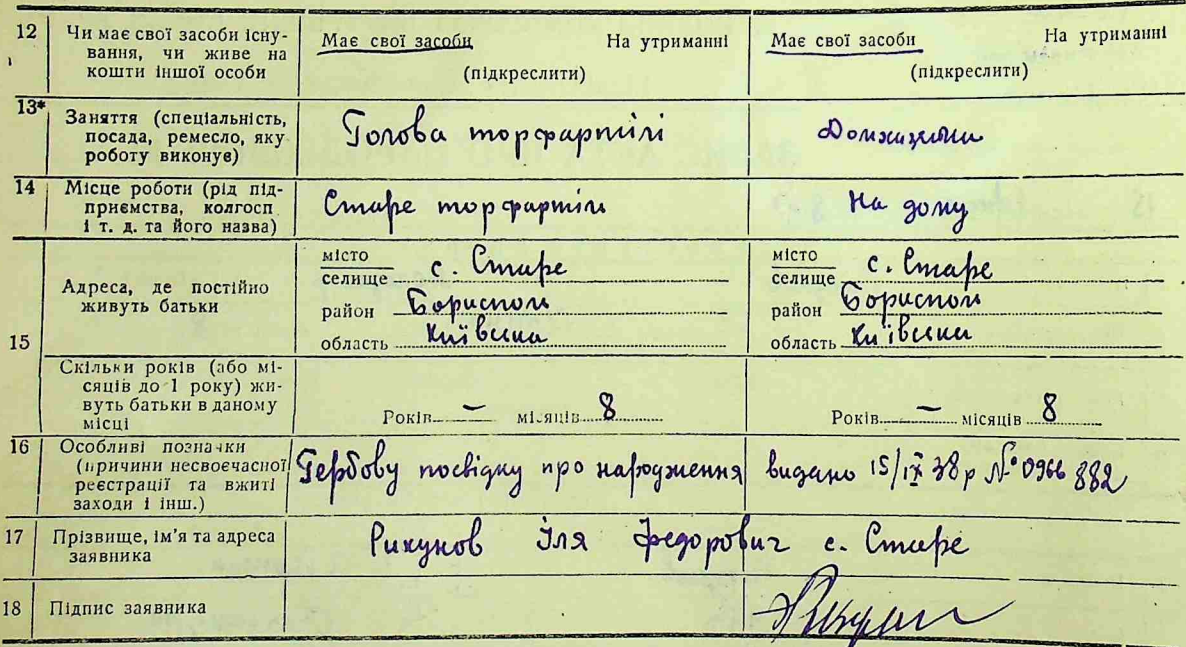 12 Чи має свої засоби існу-
вання, чи живе на
кошти іншої особи
Має свої засоби На утриманні
(підкреслити)
Має свої засоби На утриманні
(підкреслити)
13* Заняття (спеціальність,
посада, ремесло, яку
роботу виконує)
Голова торфартілі
Домхазяйка
14 Місце роботи (рід під-
приємства, колгосп
і т. д. та його назва)
Старе торфартіль
На дому
15 Адреса, де постійно
живуть батьки
місто
селище с. Старе
район Бориспол
область Київська
місто
селище с. Старе
район Бориспол
область Київська
Скільки років (або мі-
сяців до 1 року) жи-
вуть батьки в даному
місці
Років – місяців 8
Років – місяців 8
16 Особливі позначки
(причини несвоєчасної
реєстрації та вжиті
заходи і інш.)
Гербову посвідку про народження видано 15/IX 38 р № 0966 882
17 Прізвище, ім'я та адреса
заявника
Рикунов Іля Федорович с. Старе
18 Підпис заявника